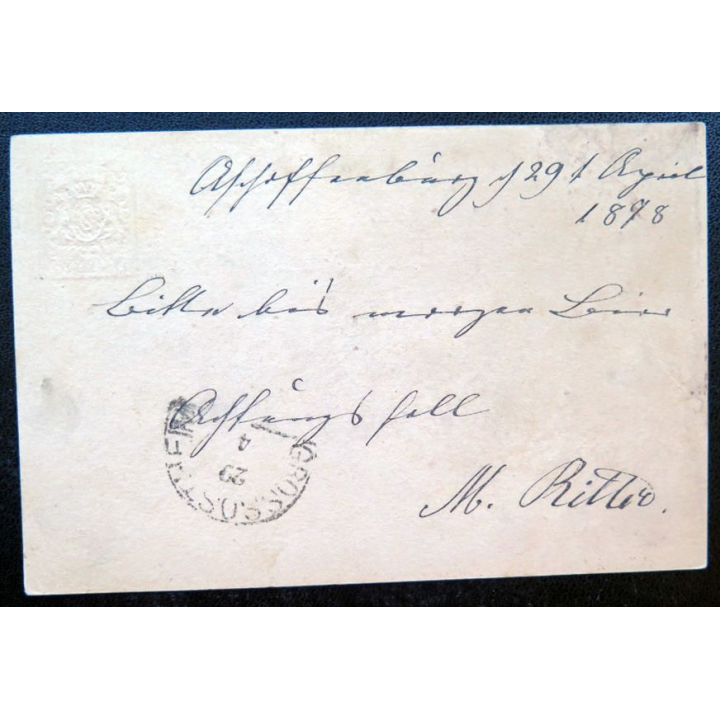 Aschaffenburg d 29t April
1878
Bitte bis morgen Bier
Achtungsvoll
M. Ritter.
GROSSOSTHEIM
29
4